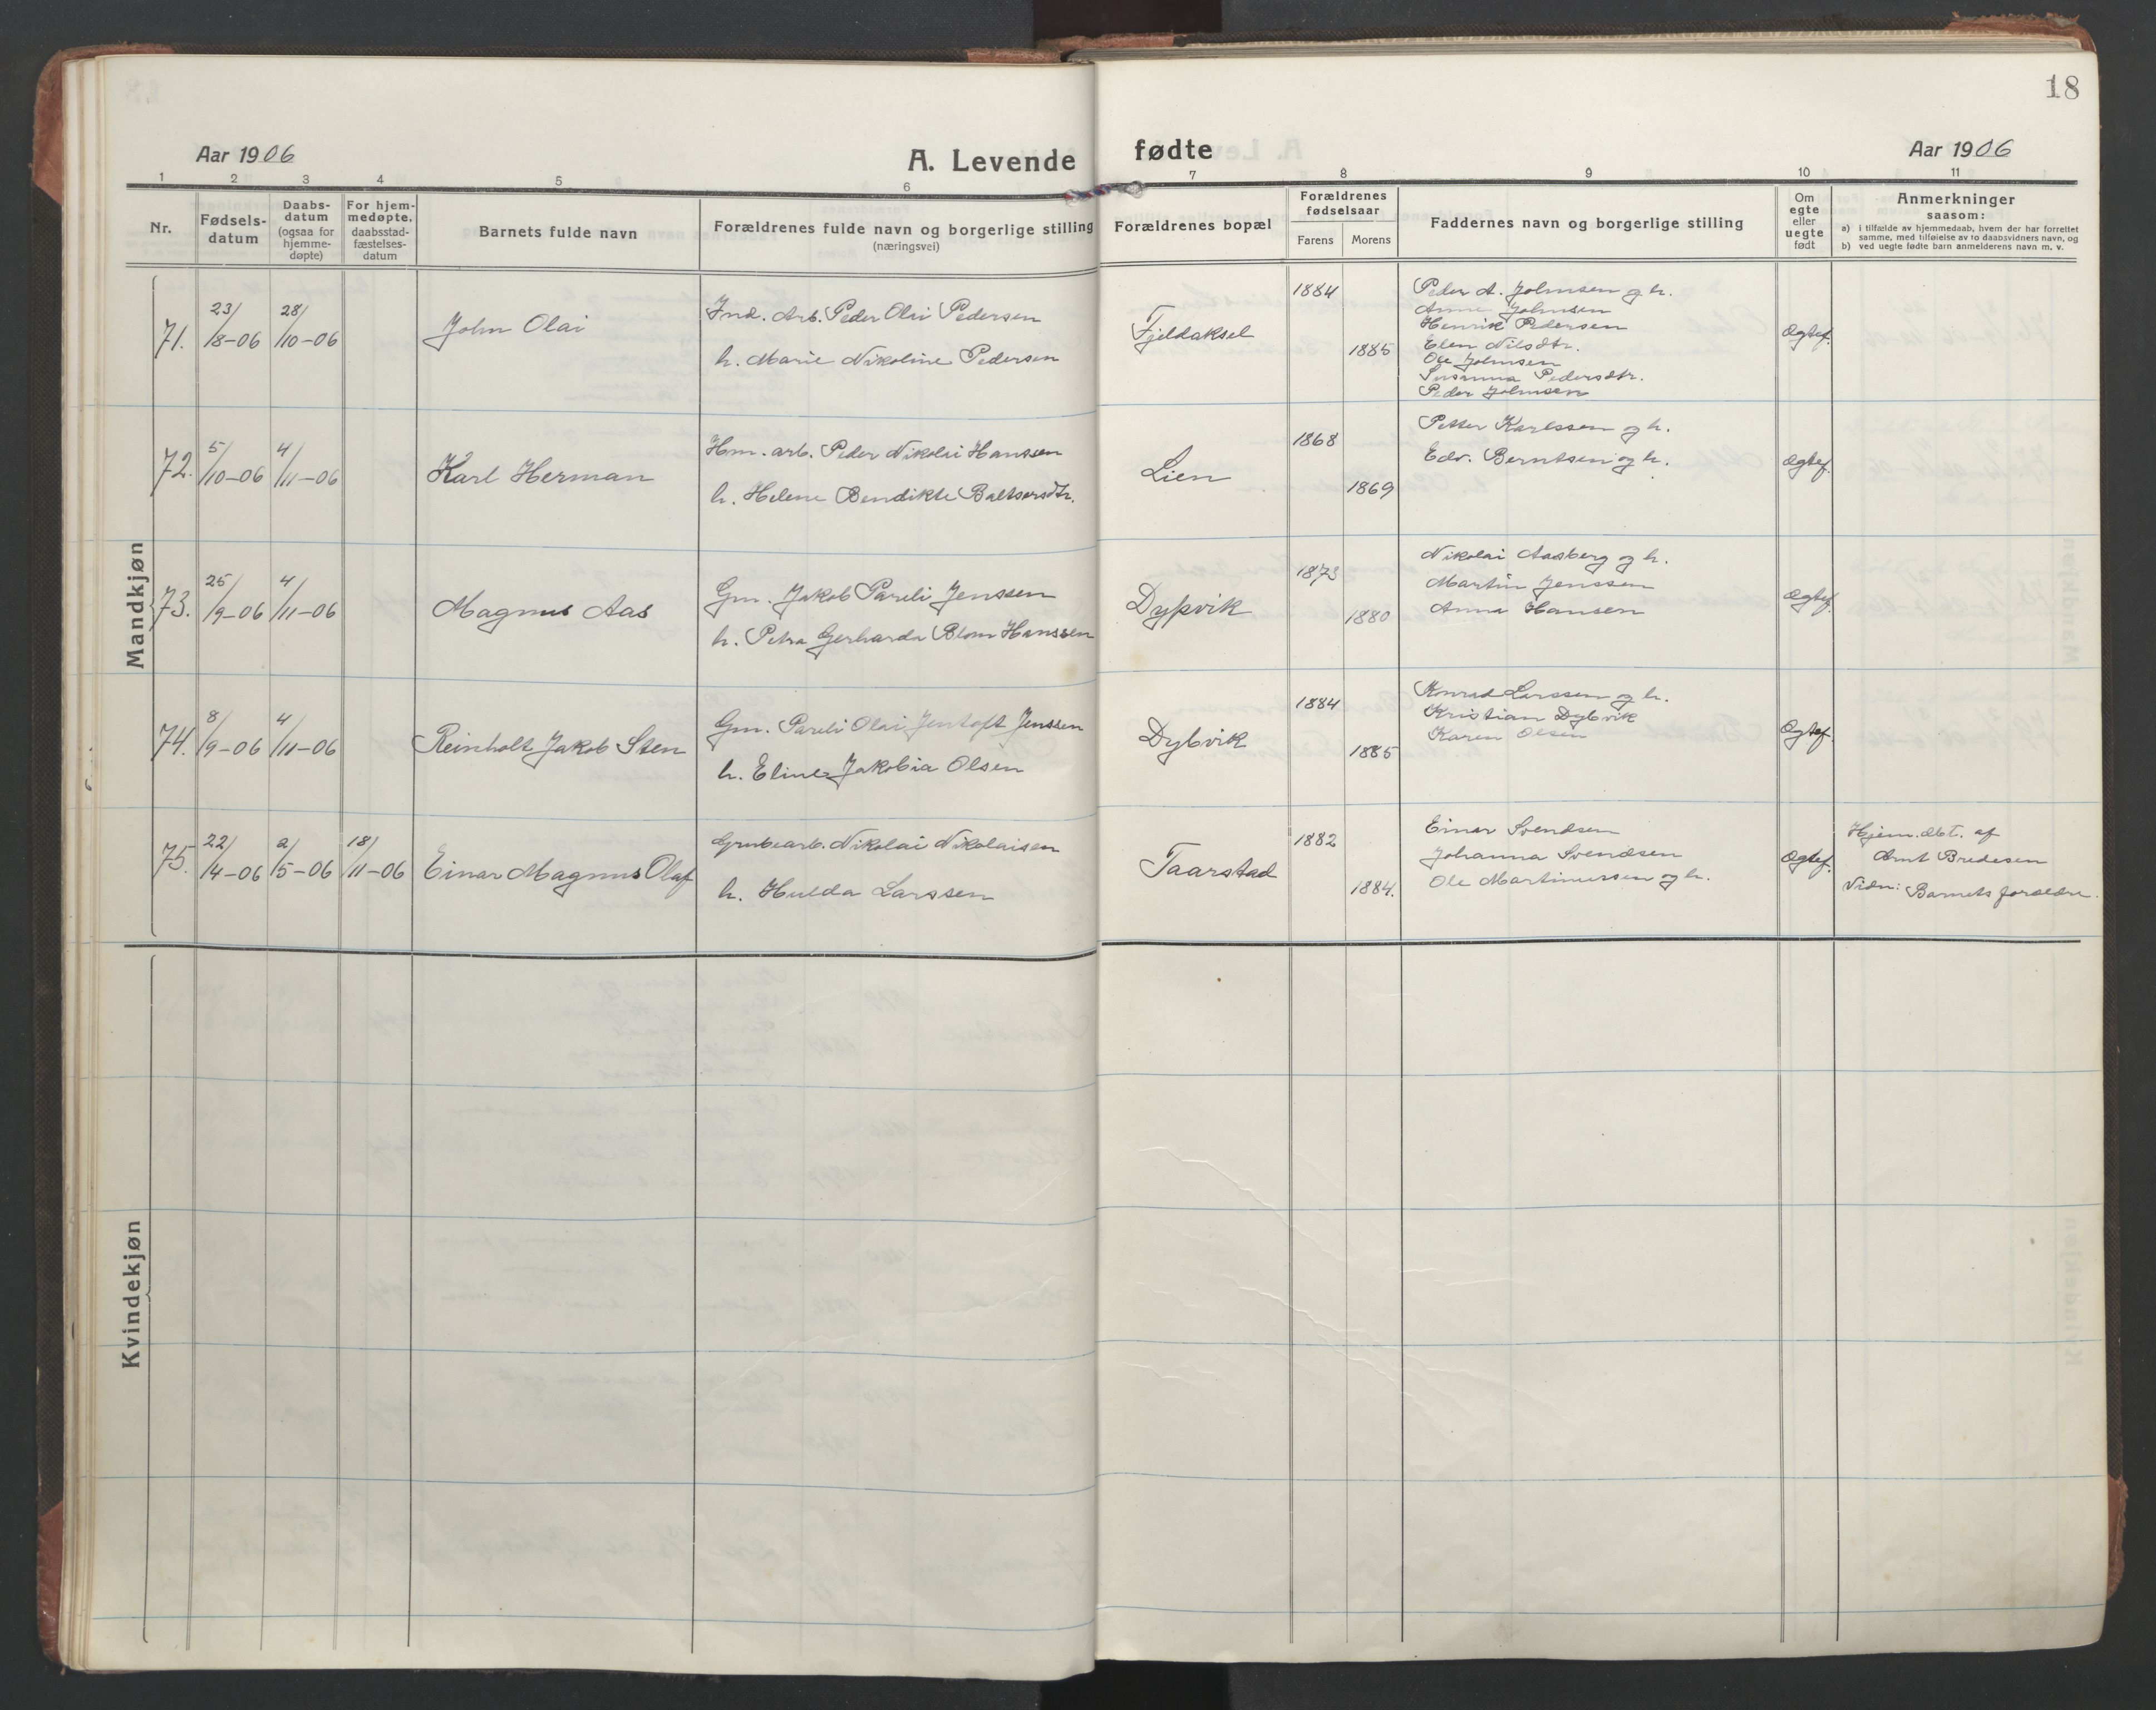 18
Aar 1906
A. Levende fødte
Aar 1906
1 2 3 4 5 6 7 8 9 10 11
Nr.
Fødsels-
datum
Daabs-
datum
(ogsaa for
hjemme-
døpte)
For hjem-
medøpte,
daabsstad-
fæstelses-
datum
Barnets fulde navn
Forældrenes fulde navn og borgerlige stilling
(næringsvei)
Forældrenes bopæl
Forældrenes
fødselsaar
Farens
Morens
Faddernes navn og borgerlige stilling
Om
egte
eller
uegte
født
Anmerkninger
saasom:
a) i tilfælde av hjemmedaab, hvem der har forrettet
samme, med tilføielse av to daabsvidners navn, og
b) ved uegte fødte barn anmelderens navn m. v.
Mandkjøn
71.
23/8-06
28/10-06
John Olai
Ind. Arb. Peder Olai Pedersen
h. Marie Nikoline Pedersen
Fjeldaksel
1884
1885
Peder A. Johnsen og h.
Anne Johnsen
Henrik Pedersen
Elen Nilsdtr.
Ole Johnsen
Susanna Pedersdtr.
Peder Johnsen
Ogtef.
72.
5/10-06
4/11-06
Karl Herman
Hm. arb. Peder Nikolai Hanssen
h. Helene Bendikte Baltsersdtr.
Lien
1868
1869
Petter Karlssen og h.
Edv. Berntsen og h.
Ogtef.
73.
25/9-06
4/11-06
Magnus Aas
Gm. Jakob Pareli Jenssen
h. Petra Gerharda Blom Hanssen
Dypvik
1873
1880
Nikolai Aasberg og h.
Martin Jenssen
Anna Hansen
Ogtef.
74.
8/9-06
4/11-06
Reinholt Jakob Sten
Gm. Pareli Olai Jentoft Jenssen
h. Eline Jakobia Olsen
Dybvik
1884
1885
Konrad Larssen og h.
Kristian Dybvik
Karen Olsen
Ogtef.
75.
22/4-06
2/5-06
18/11-06
Einar Magnus Olaf
Grubearb. Nikolai Nikolaisen
h. Hulda Larssen
Taarstad
1882
1884.
Einar Svendsen
Johanna Svendsen
Ole Martinussen og h.
Ogtef.
Hjem. dbt. af
Arnt Bredesen
Vidn: Barnets forældre.
Kvindekjøn